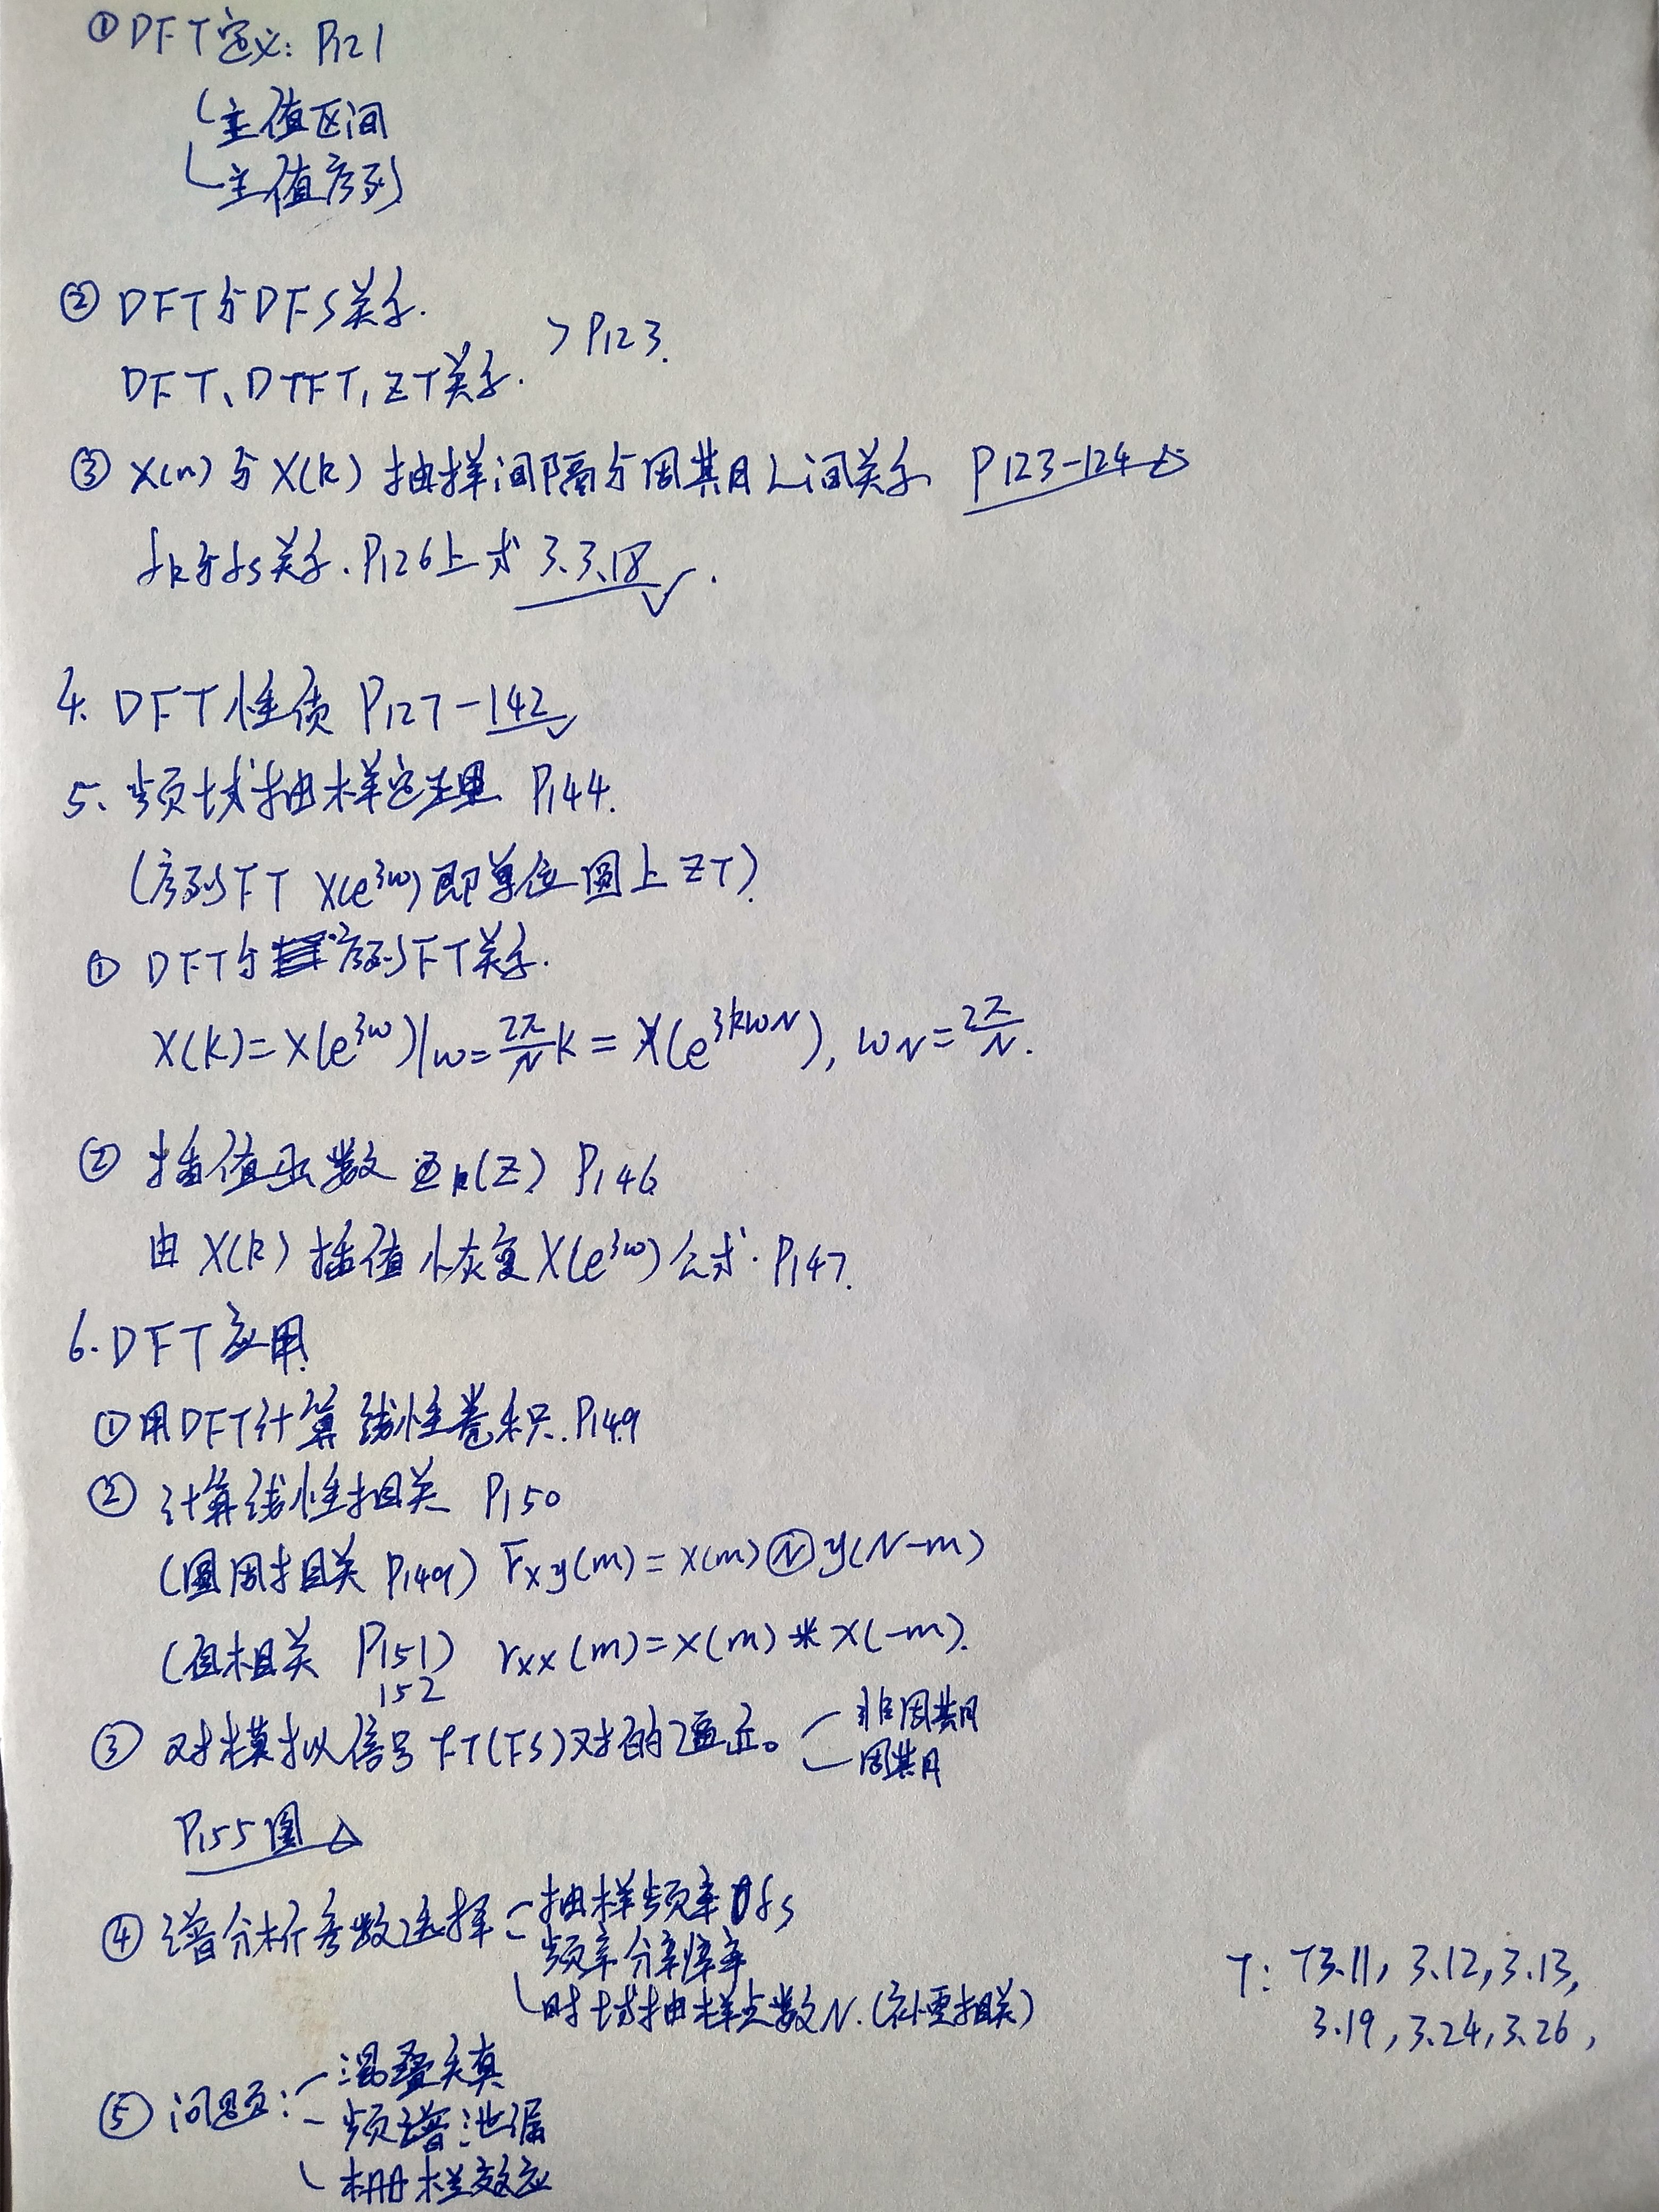 ① DFT定义: P121
主值区间
主值序列
② DFT与DFS关系.
DFT、DTFT, ZT关系. > P123.
③ x(n)与X(k) 抽样间隔与周期之间关系 P123-124
fk与fs关系. P126上式 3.3.18 ✓.
4. DFT性质 P127-142 ✓
5、频域抽样定理 P144.
(序列FT X(e^jω)即单位圆上ZT).
① DFT与序列FT关系.
X(k)=X(e^jω)|ω=2π/N k = X(e^jkωN), ωN=2π/N.
② 插值函数 Φk(z) P146
由X(k)插值恢复X(e^jω)公式. P147.
6. DFT应用.
①用DFT计算线性卷积. P149
② 计算线性相关 P150
(圆周相关 P149) r̄xy(m)=x(m)Ⓝy(N-m)
(自相关 P151) rxx(m)=x(m)*x(-m).
152
③ 对模拟信号FT(FS)对的逼近。 非周期
周期
P155图 △
④ 谱分析参数选择 抽样频率fs
频率分辨率
时域抽样点数N.(补零相关)
T: T3.11, 3.12, 3.13,
3.19, 3.24, 3.26,
⑤ 问题: 混叠失真
频谱泄漏
栅栏效应